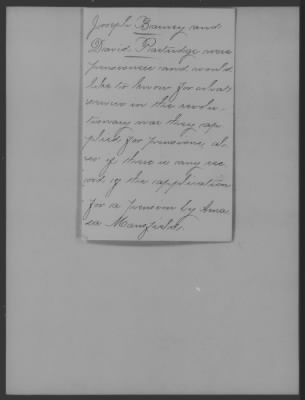 Joseph Barney and
David Partridge were
pensioners and would
like to know for what
service in the revolu-
tionary war they ap-
plied for pensions, al-
so if there is any rec-
ord of the application
for a pension by Ama-
sa Mansfield.